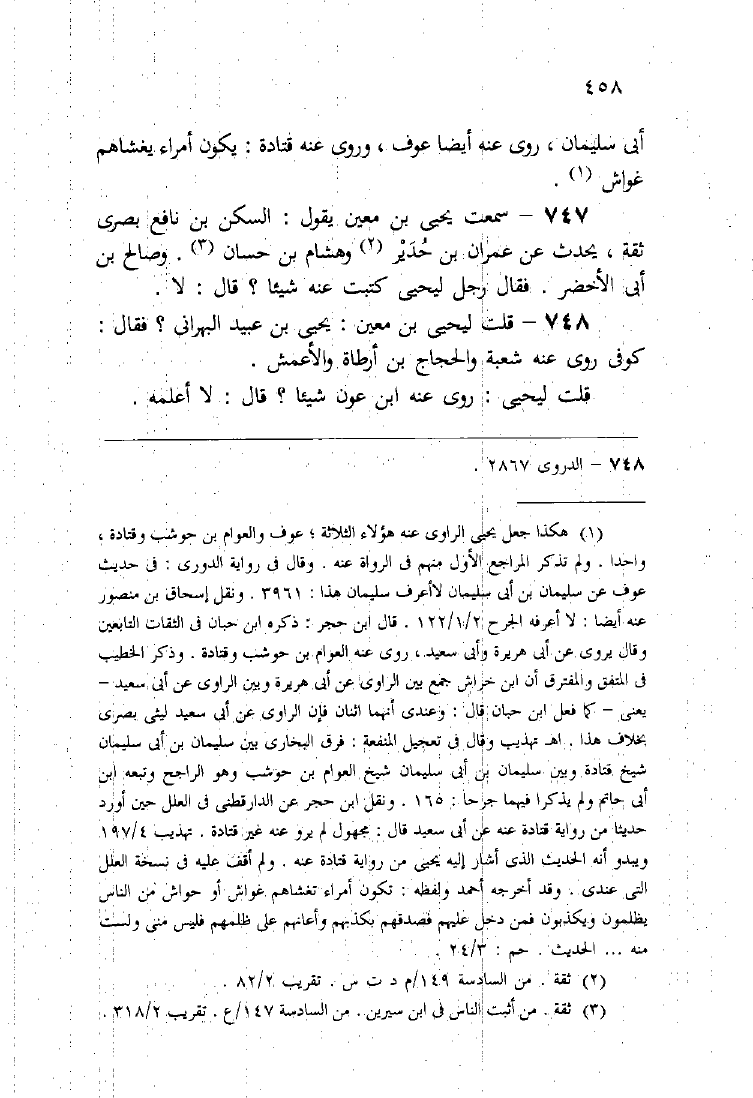 ٤٥٨
أبى سليمان ، روى عنه أيضا عوف ، وروى عنه قتادة : يكون أمراء يغشاهم
غواش (١) .
٧٤٧ – سمعت يحيى بن معين يقول : السكن بن نافع بصرى
ثقة ، يحدث عن عمران بن حُدَيْر (٢) وهشام بن حسان (٣) . وصالح بن
أبى الأخضر . فقال رجل ليحيى كتبت عنه شيئا ؟ قال : لا .
٧٤٨ – قلت ليحيى بن معين : يحيى بن عبيد البهرانى ؟ فقال :
كوفى روى عنه شعبة والحجاج بن أرطاة والأعمش .
قلت ليحيى : روى عنه ابن عون شيئا ؟ قال : لا أعلمه .
٧٤٨ – الدروى ٢٨٦٧ .
(١) هكذا جعل يحيى الراوى عنه هؤلاء الثلاثة ؛ عوف والعوام بن حوشب وقتادة ،
واحدا . ولم تذكر المراجع الأول منهم فى الرواة عنه . وقال فى رواية الدورى : فى حديث
عوف عن سليمان بن أبى سليمان لاأعرف سليمان هذا : ٣٩٦١ . ونقل إسحاق بن منصور
عنه أيضا : لا أعرفه الجرح ١٢٢/١/٢ . قال ابن حجر : ذكره ابن حبان فى الثقات التابعين
وقال يروى عن أبى هريرة وأبى سعيد ، روى عنه العوام بن حوشب وقتادة . وذكر الخطيب
فى المتفق والمفترق أن ابن خراش جمع بين الراوى عن أبى هريرة وبين الراوى عن أبى سعيد –
يعنى – كما فعل ابن حبان قال : وعندى أنهما اثنان فإن الراوى عن أبى سعيد ليثى بصرى
بخلاف هذا . اهـ تهذيب وقال فى تعجيل المنفعة : فرق البخارى بين سليمان بن أبى سليمان
شيخ قتادة وبين سليمان بن أبى سليمان شيخ العوام بن حوشب وهو الراجح وتبعه ابن
أبى حاتم ولم يذكرا فيهما جرحا : ١٦٥ . ونقل ابن حجر عن الدارقطنى فى العلل حين أورد
حديثا من رواية قتادة عنه عن أبى سعيد قال : مجهول لم يرو عنه غير قتادة . تهذيب ١٩٧/٤
ويبدو أنه الحديث الذى أشار إليه يحيى من رواية قتادة عنه . ولم أقف عليه فى نسخة العلل
التى عندى . وقد أخرجه أحمد ولفظه : تكون أمراء تغشاهم غواش أو حواش من الناس
يظلمون ويكذبون فمن دخل عليهم فصدقهم بكذبهم وأعانهم على ظلمهم فليس منى ولست
منه ... الحديث . حم : ٢٤/٣ .
(٢) ثقة . من السادسة ١٤٩/م د ت س . تقريب ٨٢/٢ .
(٣) ثقة . من أثبت الناس فى ابن سيرين . من السادسة ١٤٧/ع . تقريب ٣١٨/٢ .